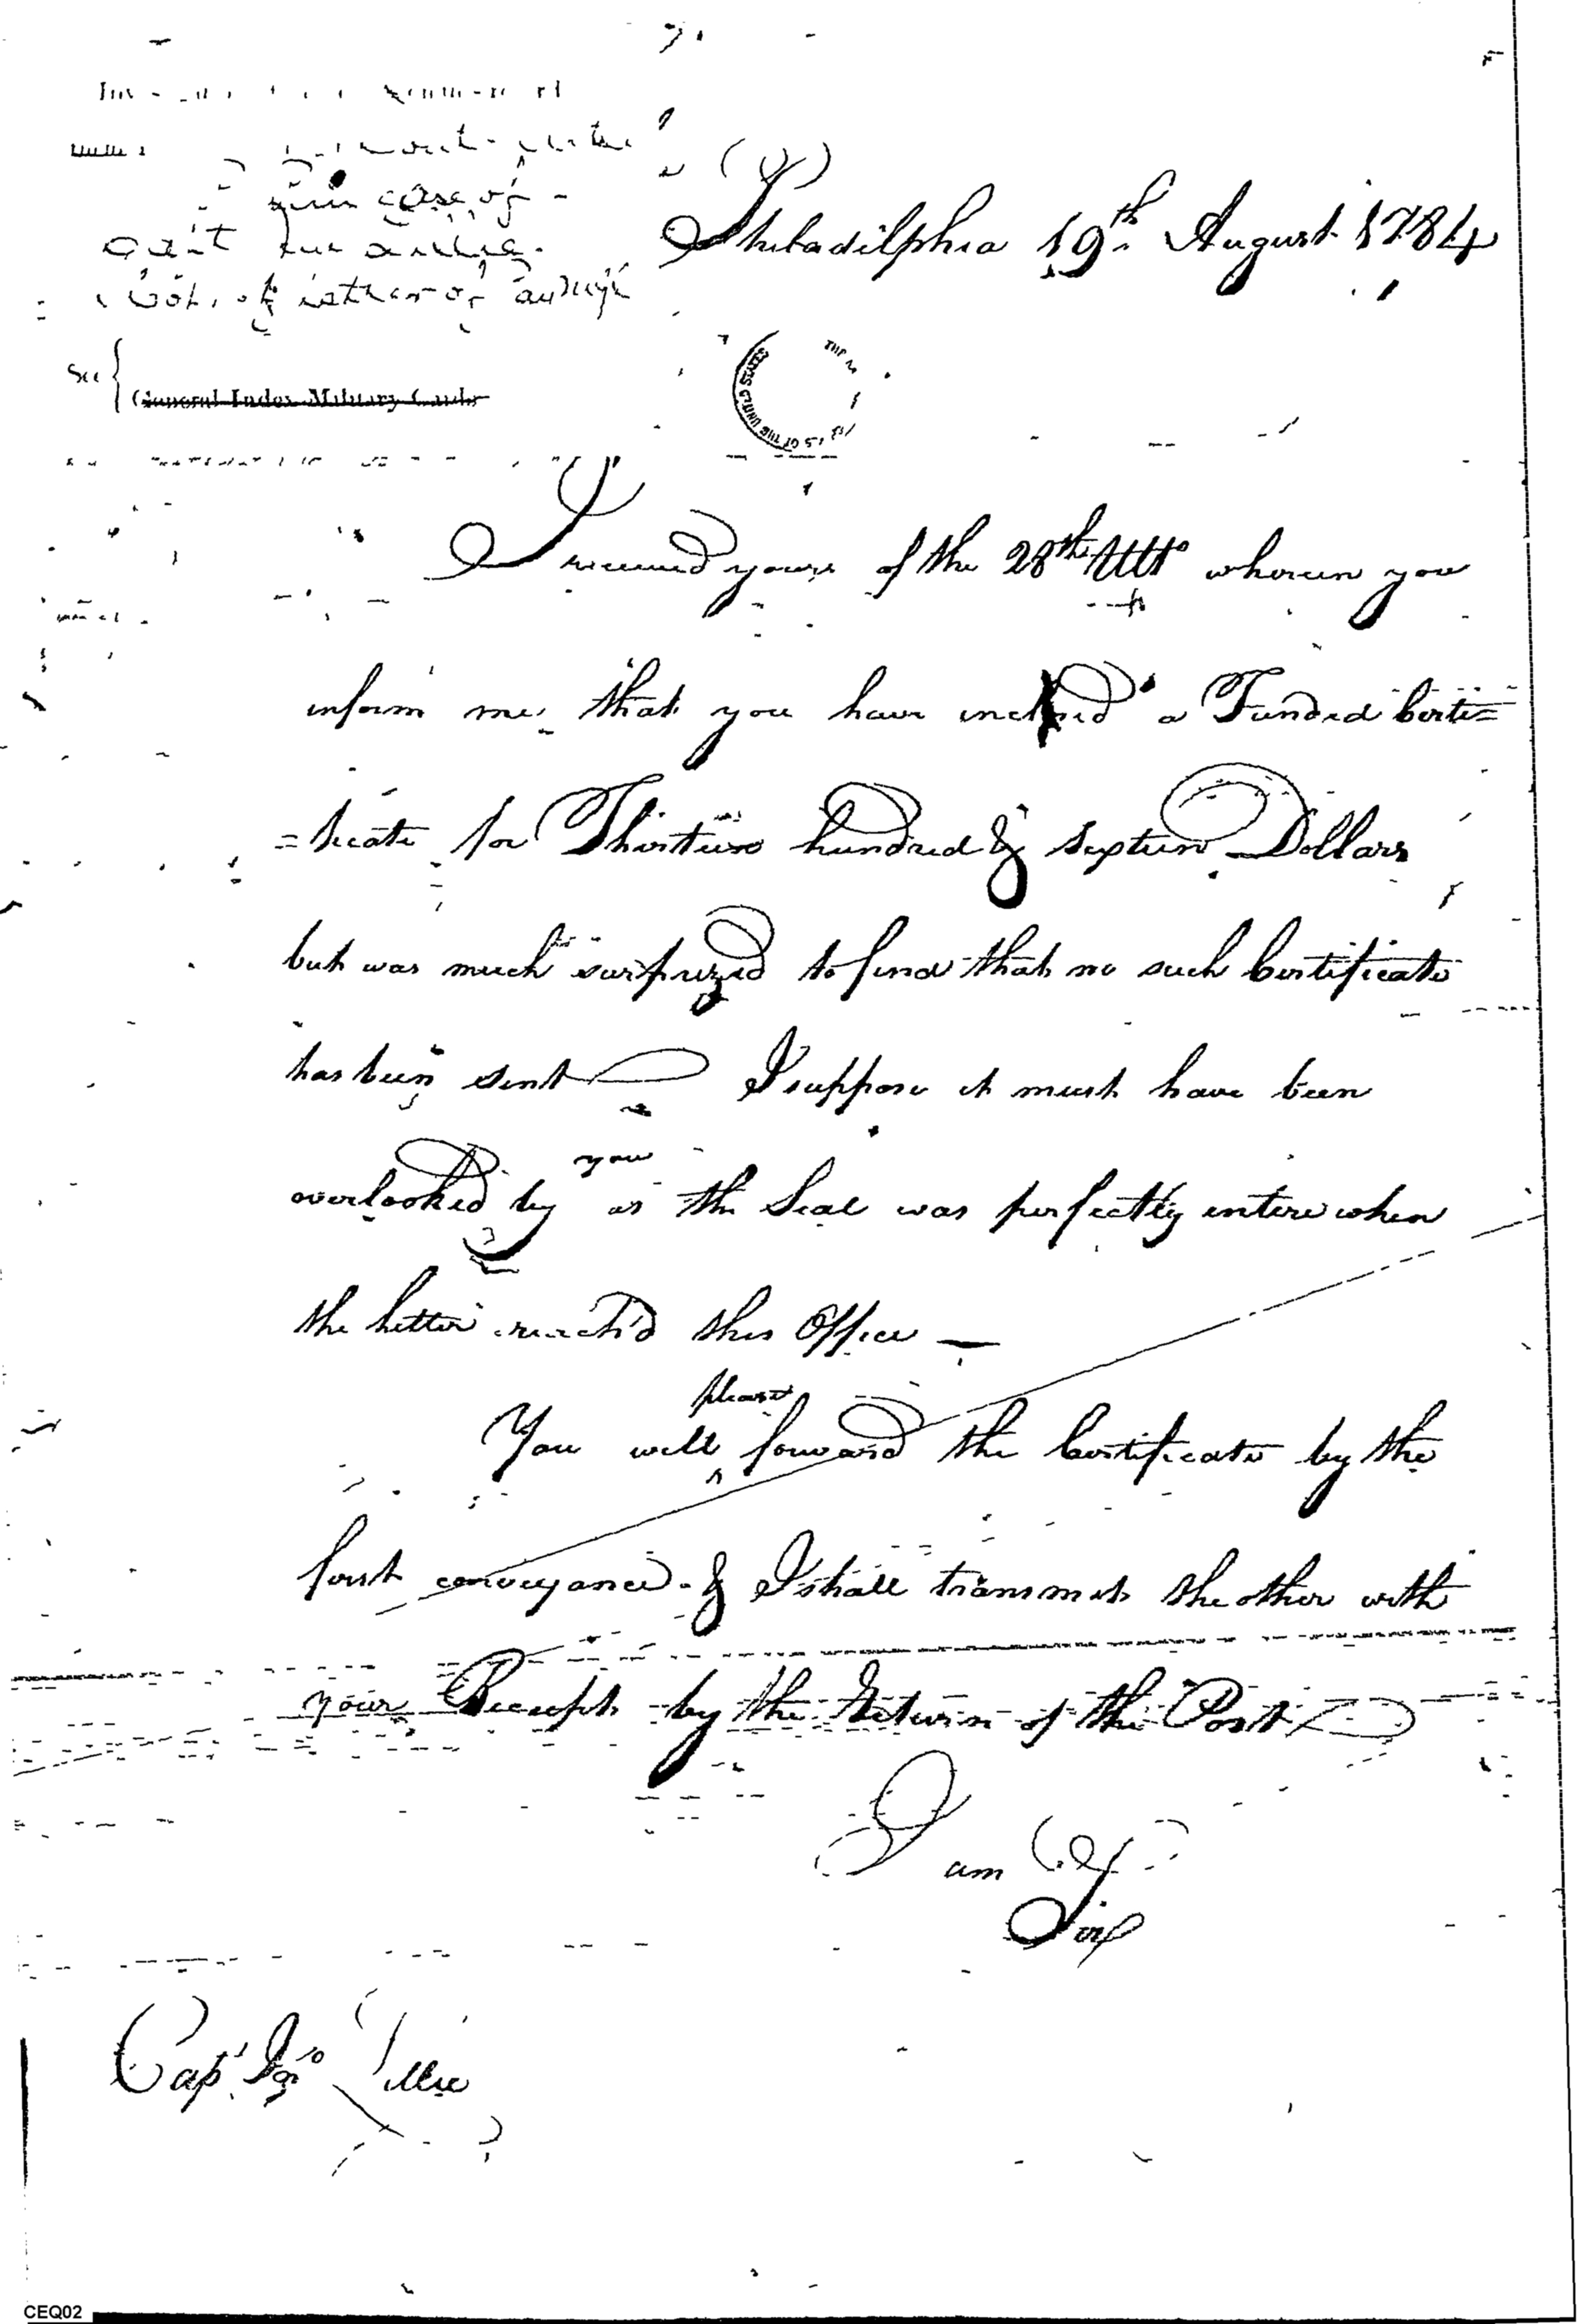 Philadilphia 19th August 1784
See
General Index Military Cards
I received yours of the 28th Ulto wherein you
inform me that you have inclosed a Funded Certi=
=ficate for Thirteen hundred & sixteen Dollars
but was much surprized to find that no such Certificate
has been sent I suppose it must have been
you
overlooked by as the Seal was perfectly entire when
the Letter reach'd this Office —
please
You will forward the Certificate by the
first conveyance & I shall transmit the other with
your Receipt by the Return of the Post
I am &c
Sir
Capt Jno Lillie
CEQ02